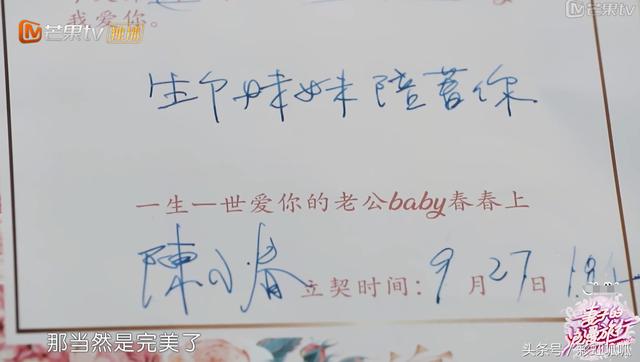 我爱你。
芒果tv 独播
芒果tv
生个妹妹陪著你
一生一世爱你的老公baby春春上
陳小春 立契时间: 9月27日
妻子的浪漫旅行
那当然是完美了
头条号 /